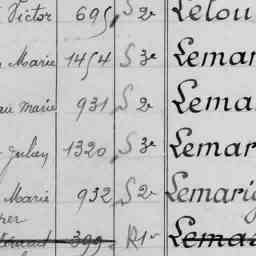 Victor 695 S 2e Lelou
Marie 1454 S 3e Lemar
marie 931 S 2e Lema
Julien 1320 S 3e Lemar
Marie 932 S 2e Lemarig
399 R1e Lema